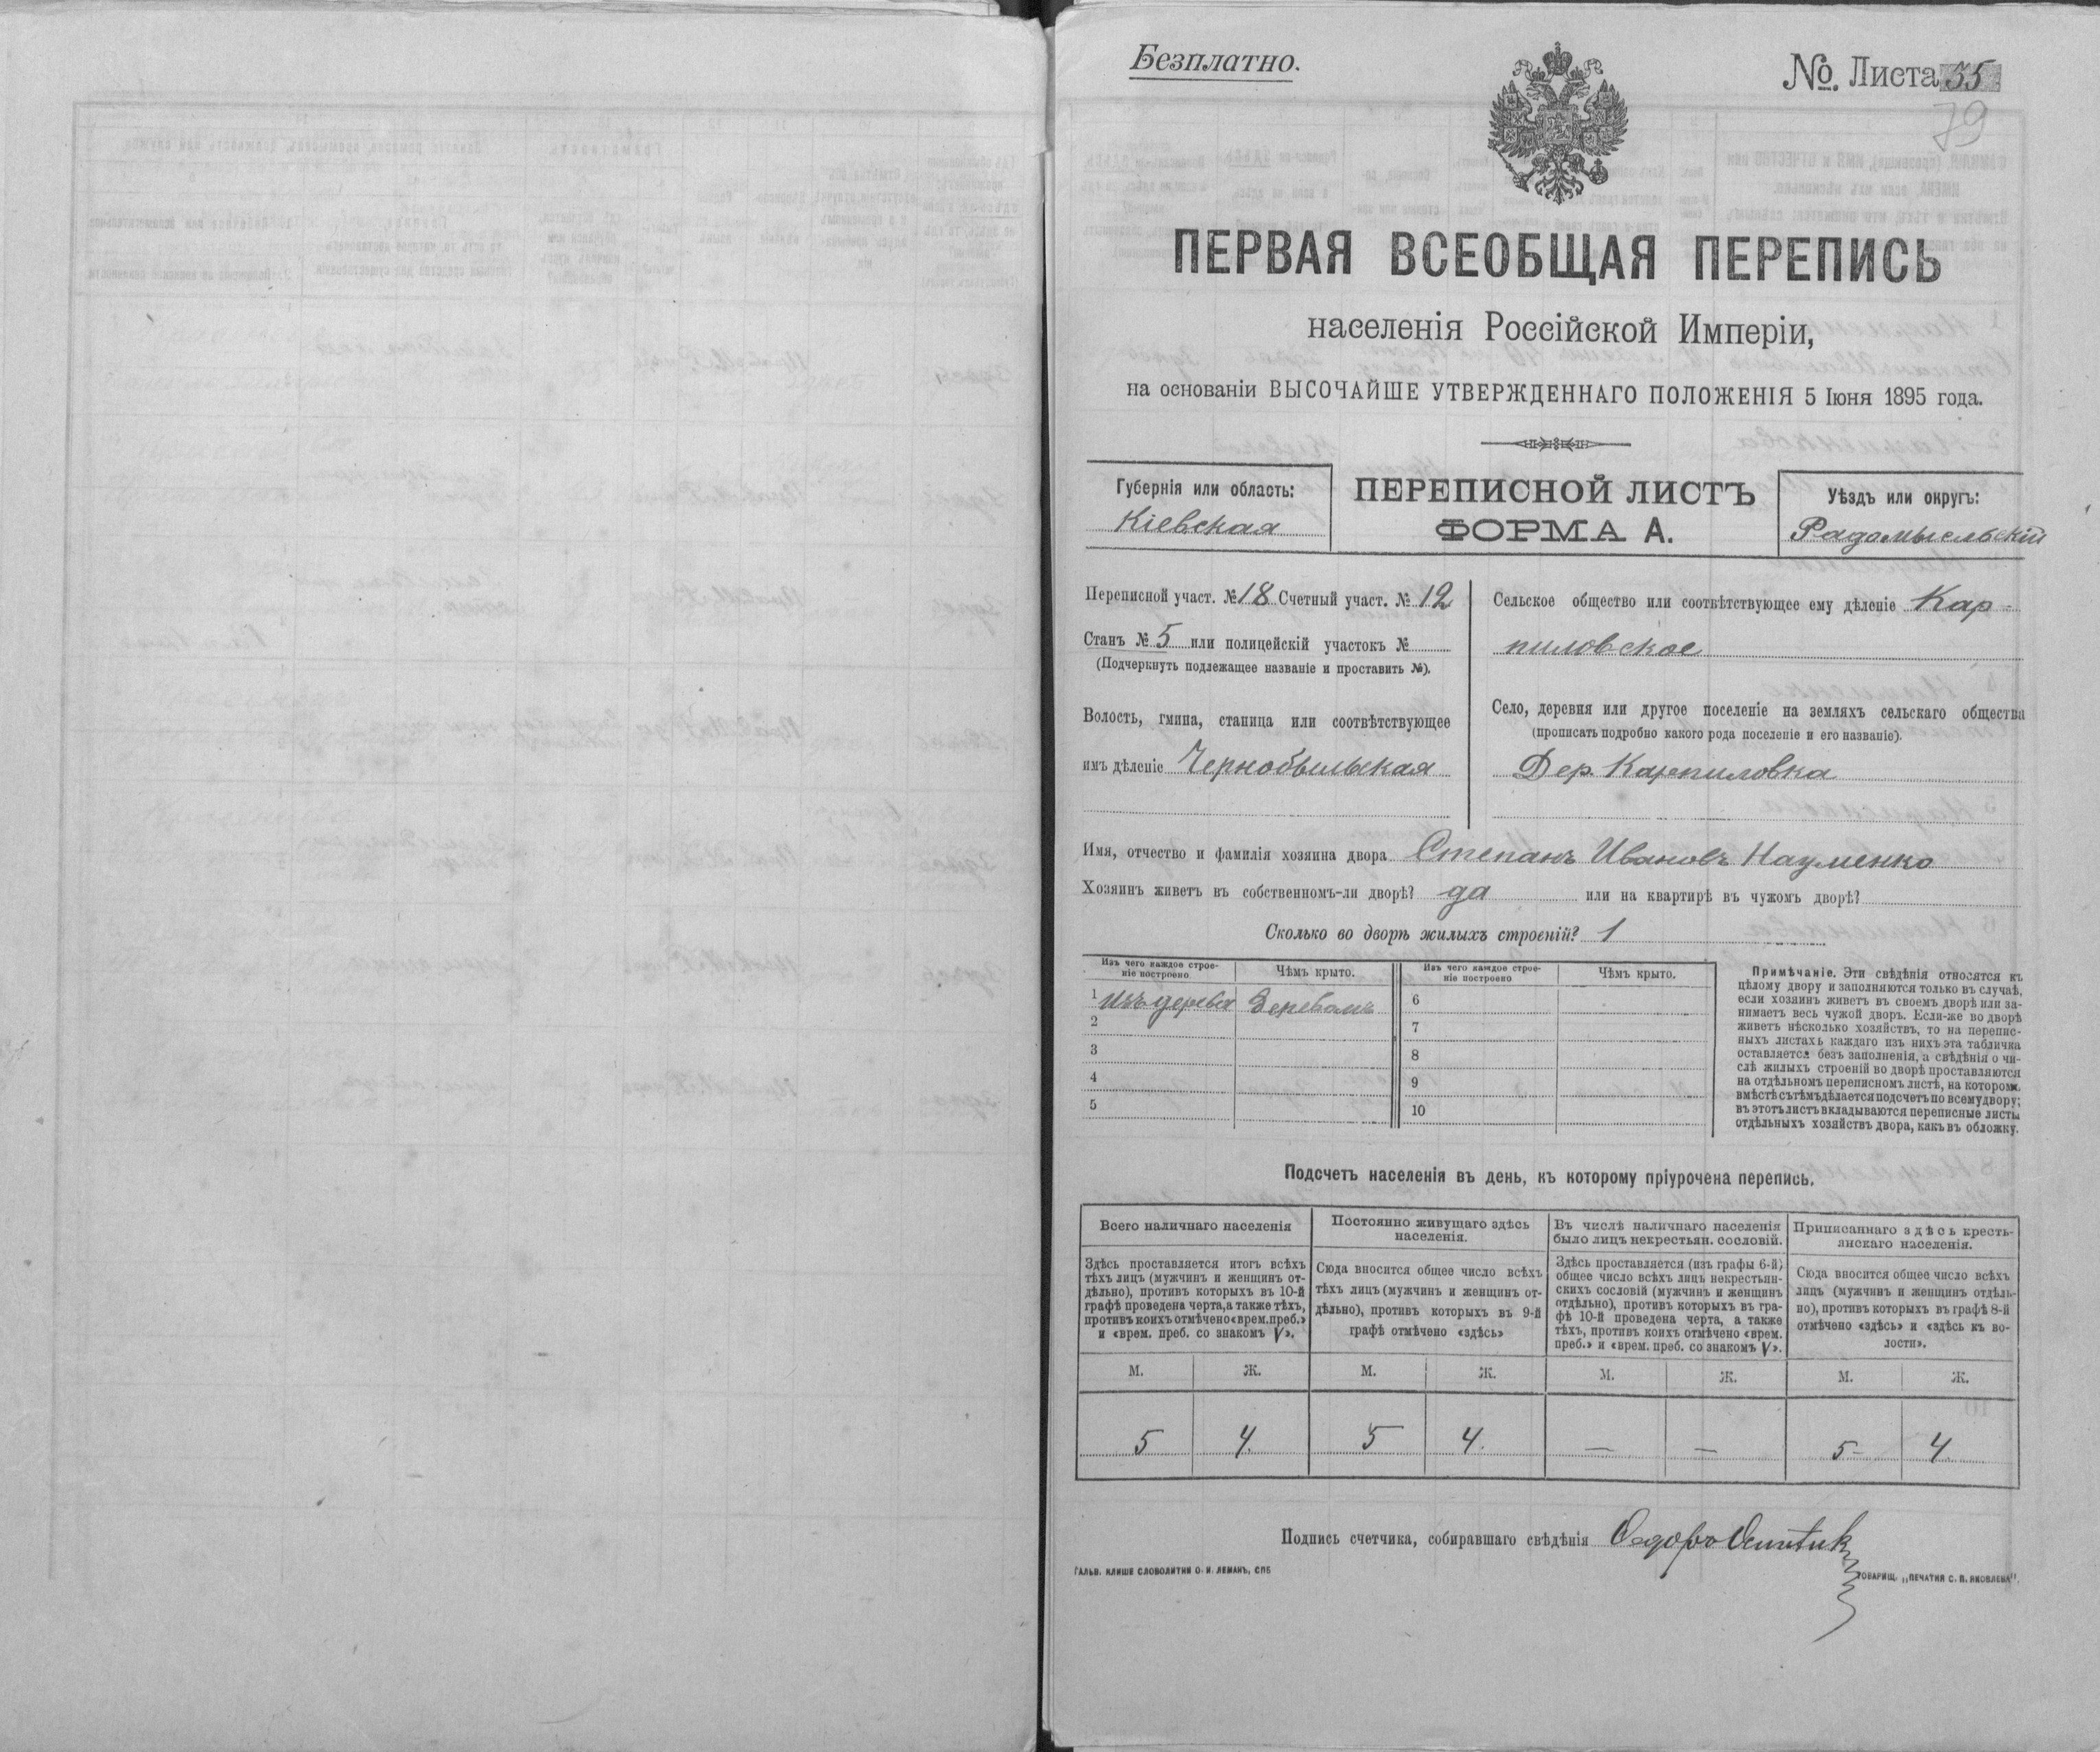 Безплатно.
№ Листа 35
79
ПЕРВАЯ ВСЕОБЩАЯ ПЕРЕПИСЬ
населенія Россійской Имперіи,
на основаніи ВЫСОЧАЙШЕ УТВЕРЖДЕННАГО ПОЛОЖЕНІЯ 5 Іюня 1895 года.
Губернія или область:
Кіевская
ПЕРЕПИСНОЙ ЛИСТЪ
ФОРМА А.
Уѣздъ или округъ:
Радомысльскій
Переписной участ. № 18 Счетный участ. № 12
Станъ № 5 или полицейскій участокъ №
(Подчеркнуть подлежащее названіе и проставить №).
Волость, гмина, станица или соотвѣтствующее
имъ дѣленіе Чернобыльская
Сельское общество или соотвѣтствующее ему дѣленіе Кар-
пиловское
Село, деревня или другое поселеніе на земляхъ сельскаго общества
(прописать подробно какого рода поселеніе и его названіе).
Дер. Карпиловка
Имя, отчество и фамилія хозяина двора Степанъ Ивановъ Науменко
Хозяинъ живетъ въ собственномъ-ли дворѣ? да или на квартирѣ въ чужомъ дворѣ?
Сколько во дворѣ жилыхъ строеній? 1
Изъ чего каждое строе-
ніе построено
Чѣмъ крыто.
Изъ чего каждое строе-
ніе построено
Чѣмъ крыто.
1 Изъ дерева Деревомъ 6
2 7
3 8
4 9
5 10
Примѣчаніе. Эти свѣдѣнія относятся къ
цѣлому двору и заполняются только въ случаѣ,
если хозяинъ живетъ въ своемъ дворѣ или за-
нимаетъ весь чужой дворъ. Если-же во дворѣ
живетъ нѣсколько хозяйствъ, то на перепис-
ныхъ листахъ каждаго изъ нихъ эта табличка
оставляется безъ заполненія, а свѣдѣнія о чи-
слѣ жилыхъ строеній во дворѣ проставляются
на отдѣльномъ переписномъ листѣ, на которомъ,
вмѣстѣ съ тѣмъ дѣлается подсчетъ по всему двору;
въ этотъ листъ вкладываются переписные листы
отдѣльныхъ хозяйствъ двора, какъ въ обложку.
Подсчетъ населенія въ день, къ которому пріурочена перепись.
Всего наличнаго населенія
Здѣсь проставляется итогъ всѣхъ
тѣхъ лицъ (мужчинъ и женщинъ от-
дѣльно), противъ которыхъ въ 10-й
графѣ проведена черта, а также тѣхъ,
противъ коихъ отмѣчено «врем. преб.»
и «врем. преб. со знакомъ V».
Постоянно живущаго здѣсь
населенія.
Сюда вносится общее число всѣхъ
тѣхъ лицъ (мужчинъ и женщинъ от-
дѣльно), противъ которыхъ въ 9-й
графѣ отмѣчено «здѣсь»
Въ числѣ наличнаго населенія
было лицъ некрестьян. сословій.
Здѣсь проставляется (изъ графы 6-й)
общее число всѣхъ лицъ некрестьян-
скихъ сословій (мужчинъ и женщинъ
отдѣльно), противъ которыхъ въ гра-
фѣ 10-й проведена черта, а также
тѣхъ, противъ коихъ отмѣчено «врем.
преб.» и «врем. преб. со знакомъ V».
Приписаннаго здѣсь кресть-
янскаго населенія.
Сюда вносится общее число всѣхъ
лицъ (мужчинъ и женщинъ отдѣль-
но), противъ которыхъ въ графѣ 8-й
отмѣчено «здѣсь» и «здѣсь къ во-
лости».
М. Ж. М. Ж. М. Ж. М. Ж.
5 4. 5 4. — — 5 4
Подпись счетчика, собиравшаго свѣдѣнія
ГАЛЬВ. КЛИШЕ СЛОВОЛИТНИ О. И. ЛЕМАНЪ, СПБ
ТОВАРИЩ. „ПЕЧАТНЯ С. П. ЯКОВЛЕВА".